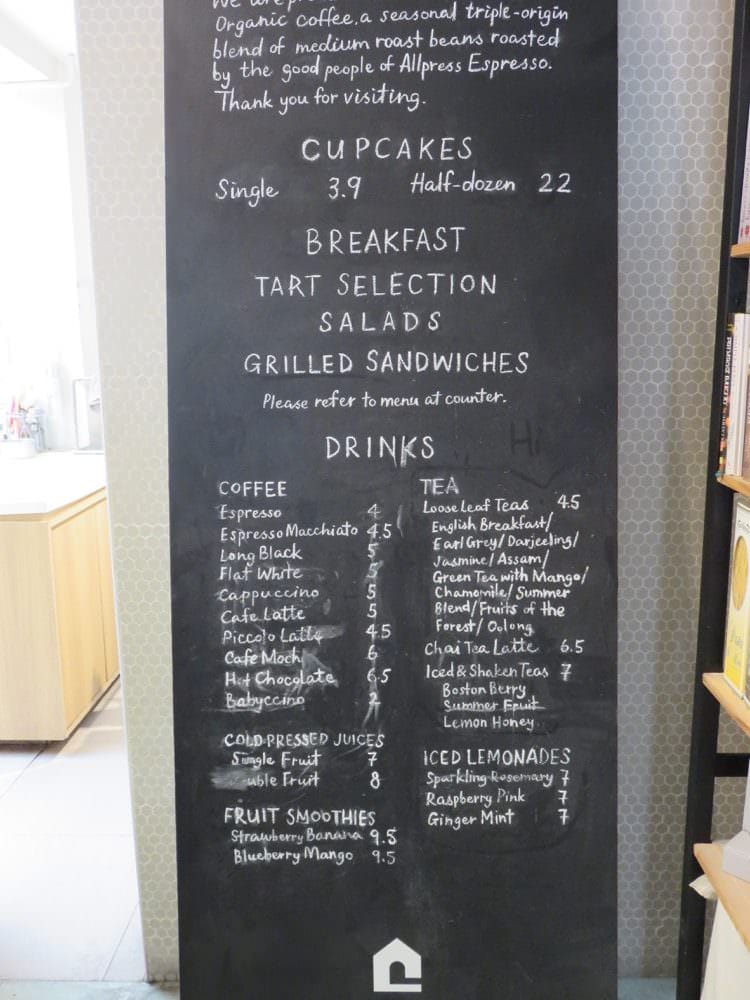 Organic coffee, a seasonal triple-origin
blend of medium roast beans roasted
by the good people of Allpress Espresso.
Thank you for visiting.
CUPCAKES
Single 3.9 Half-dozen 22
BREAKFAST
TART SELECTION
SALADS
GRILLED SANDWICHES
Please refer to menu at counter.
DRINKS
Hi
COFFEE
Espresso 4
Espresso Macchiato 4.5
Long Black 5
Flat White 5
Cappuccino 5
Cafe Latte 5
Piccolo Latte 4.5
Cafe Moch 6
Hot Chocolate 6.5
Babyccino 2
COLD PRESSED JUICES
Single Fruit 7
uble Fruit 8
FRUIT SMOOTHIES
Strawberry Banana 9.5
Blueberry Mango 9.5
TEA
Loose Leaf Teas 4.5
English Breakfast/
Earl Grey/Darjeeling/
Jasmine/Assam/
Green Tea with Mango/
Chamomile/Summer
Blend/Fruits of the
Forest/Oolong
Chai Tea Latte 6.5
Iced & Shaken Teas 7
Boston Berry
Summer Fruit
Lemon Honey
ICED LEMONADES
Sparkling Rosemary 7
Raspberry Pink 7
Ginger Mint 7